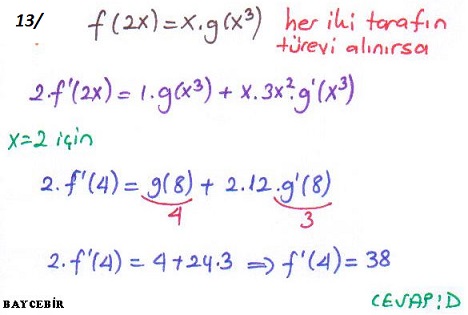 13/ f(2x)=x.g(x³) her iki tarafın
türevi alınırsa
2.f'(2x)=1.g(x³)+x.3x².g'(x³)
x=2 için
2.f'(4)=g(8)+2.12.g'(8)
4 3
2.f'(4)=4+24.3 ⇒ f'(4)=38
BAYCEBİR CEVAP:D